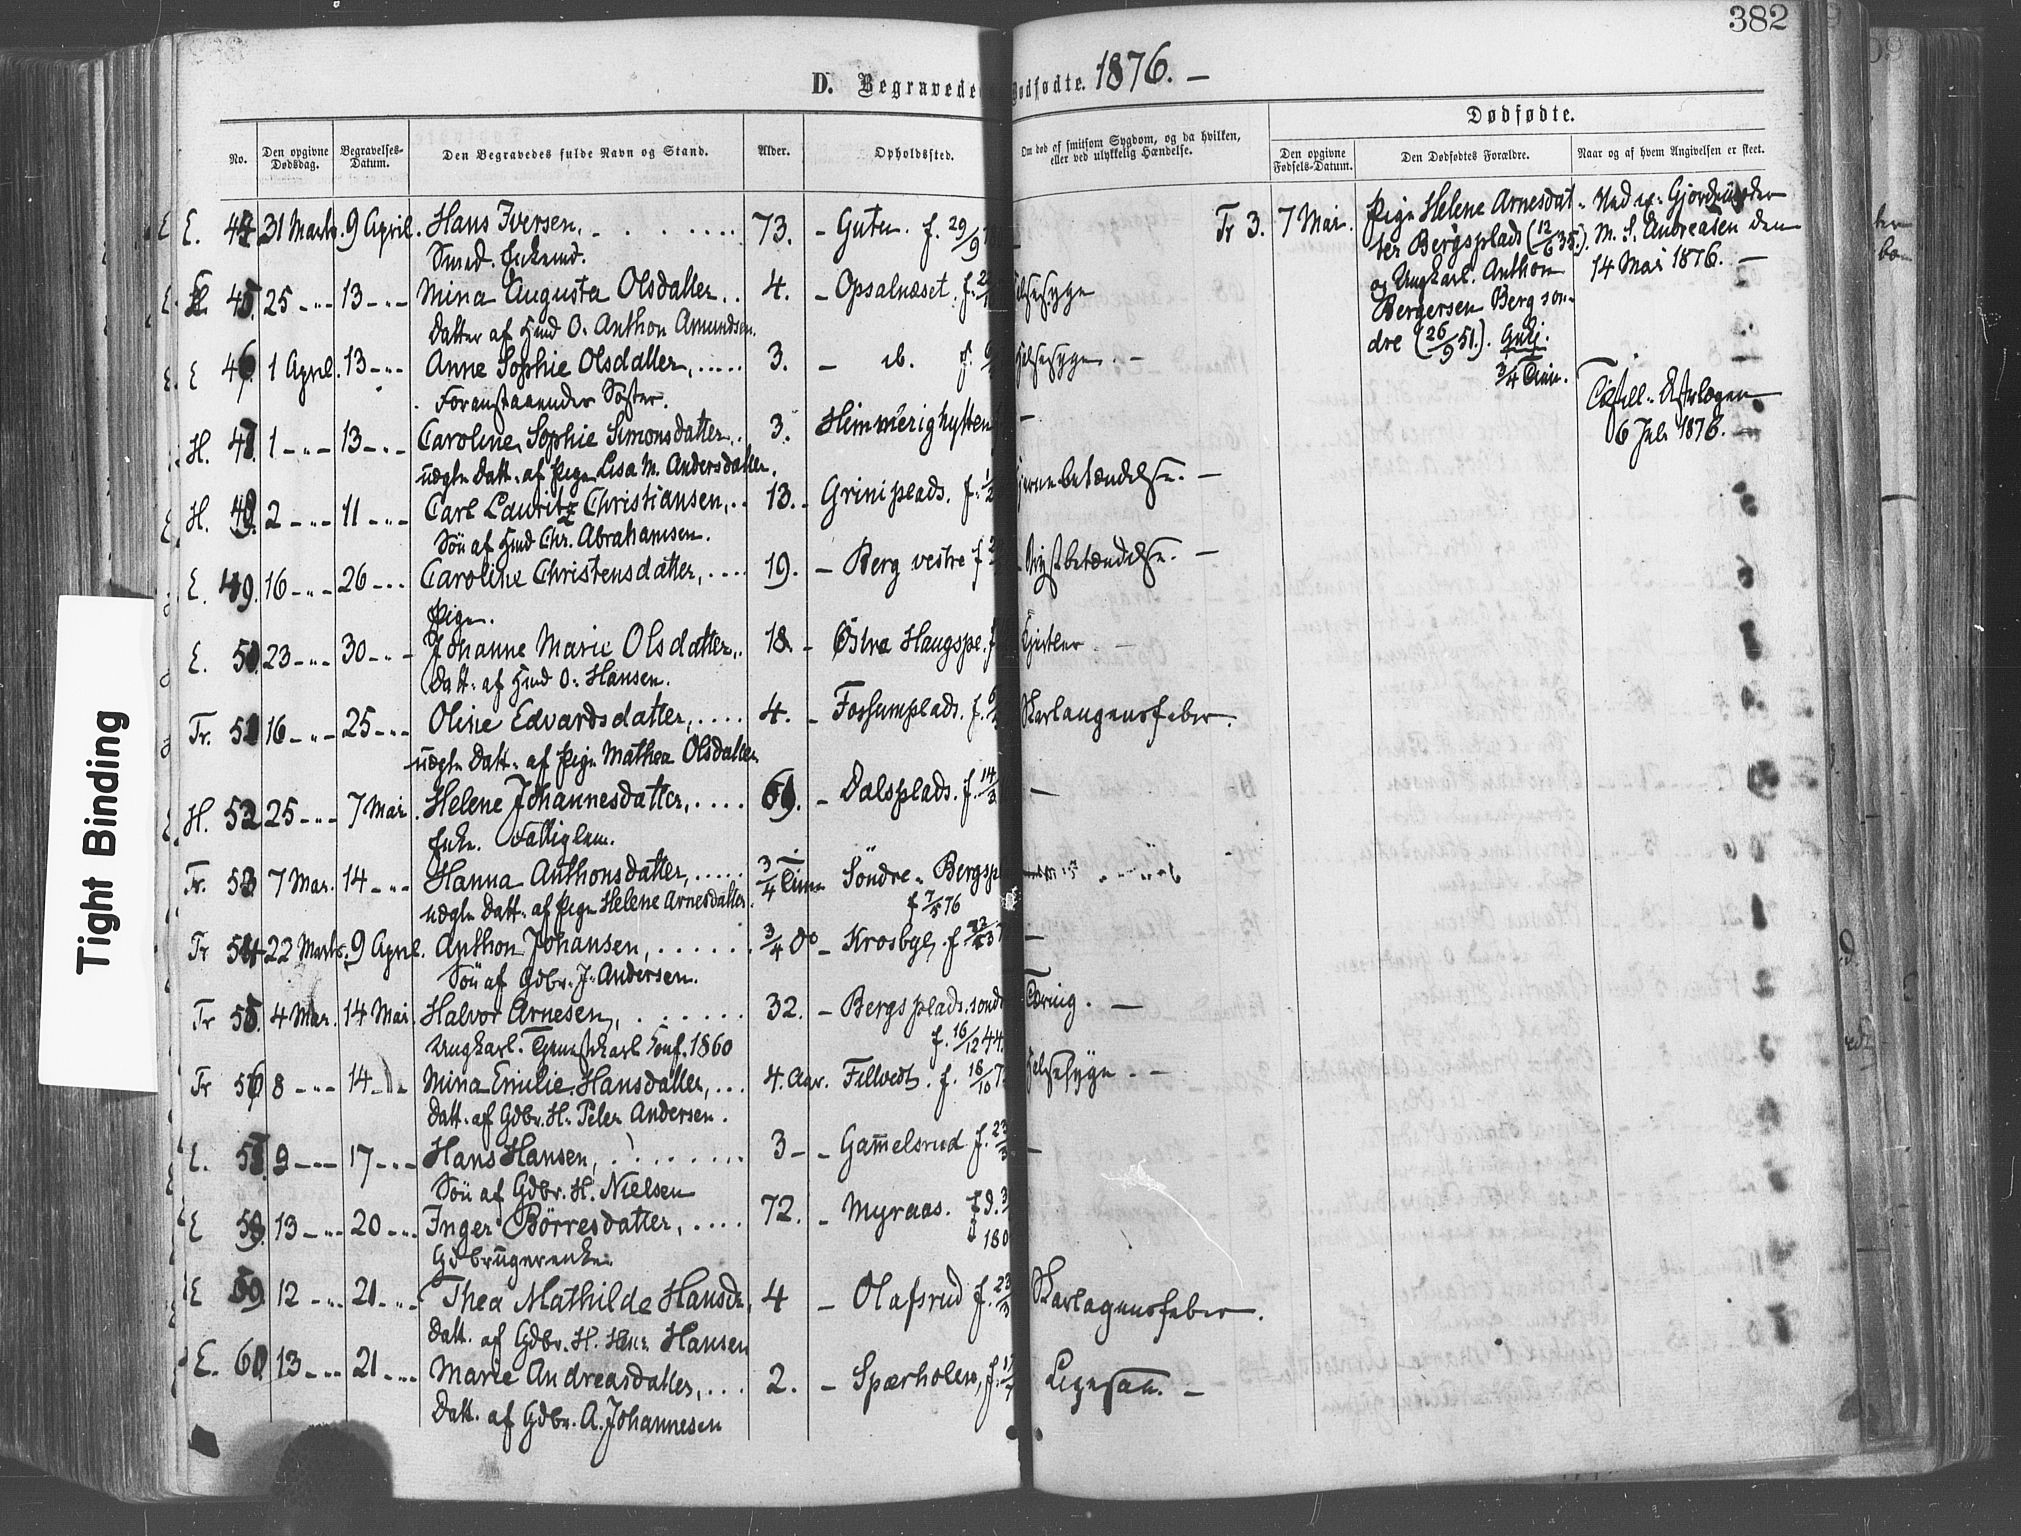 382
D. Begravede Dødfødte. 1876. —
Dødfødte.
No. Den opgivne Dødsdag. Begravelses-Datum. Den Begravedes fulde Navn og Stand. Alder. Opholdssted. Om død af smitsom Sygdom, og da hvilken, eller ved ulykkelig Hændelse. Den opgivne Fødsels-Datum. Den Dødfødtes Forældre. Naar og af hvem Angivelsen er skeet.
E. 44. 31 Marts. 9 April. Hans Iversen, 73. – Guten. f. 29/9
Smed. Enkemd.
45. 25 – „ – 13 – „ – Mina Augusta Olsdatter.. 4. – Opsalnæset. f. Halsesyge
Datter af Hmd O. Anthon Amundsen.
E 46. 1 April. 13 – „ – Anne Sophie Olsdatter, 3. – ib. f. Halsesyge. –
Foranstaaendes Søster.
H. 47. 1 – „ – 13 – „ – Caroline Sophie Simonsdatter.. 3. Himmerighytten –
uægte Datt. af Pige Lisa M. Andersdatter.
H. 48. 2 – „ – 11 – „ – Carl Lauritz Christiansen,.. 13. Griniplads. f. Hjernebetændelse. –
Søn af Hmd Chr. Abrahamsen.
E. 49. 16 – „ – 26 – „ – Caroline Christensdatter, 19. – Berg vestre f Brystbetændelse. –
Pige.
E. 50. 23 – „ – 30 – „ – Johanne Marie Olsdatter,. 18. – Østre Haugspl. f. Kjertler –
Datt. af Hmd O. Hansen.
Tr. 51 16 – „ – 25 – „ – Oline Edvardsdatter, 4. – Fossumplads. f. Skarlagensfeber.
uægte Datt. af Pige Mathea Olsdatter
H. 52 25 – „ – 7 Mai. Helene Johannesdatter, 61. – Dalsplads. f. 14/3 –
Enke. Fattiglem.
Tr. 53 7 Mai. 14 – „ – Hanna Anthonsdatter, 3/4 Time Søndre Bergspl
uægte Datt. af Pige Helene Arnesdatter. f 7/5 76
Tr 54 22 Marts. 9 April. Anthon Johansen, 3/4 do – Krosby, f –
Søn af Gdbr. J. Andersen.
Tr 55. 4 Mai. 14 Mai. Halvor Arnesen, 32. – Bergsplads. sondr Tæring. –
Ungkarl. Tjenestekarl Conf. 1860 f. 16/12 44.
Tr 56 8 – „ – 14 – „ – Mina Emilie Hansdatter, 4. Aar. Fillvedt. f. 18/10 7 Halsesyge. –
Datt. af Gdbr. H. Peter Andersen.
E. 57 9 – „ – 17 – „ – Hans Hansen, 3 – – Gammelsrud f. 23 –
Søn af Gdbr. H. Nielsen
E 58. 13 – „ – 20 – „ – Inger Børresdatter, 72. – Myraas. f. d. 3
Gdbrugerenke. 180
E 59. 12 – „ – 21 – „ – Thea Mathilde Hansd., 4 – Olafsrud f. 23 Skarlagensfeber.
Datt. af Gdbr. H. Hansen
E. 60 13 – „ – 21 – „ – Marie Andreasdatter, 2. – Spærholen, f. 17
Datt. af Gdbr. A. Johannesen
Tr 3. 7 Mai. Pige Helene Arnesdat-
ter Bergsplads (12/6 35).
og Ungkarl. Anthon
Bergersen Berg søn-
dre (26/9 51).
3/4 Time.
Ved Gjordmoder
M. S. Andreasen den
14 Mai 1876. –
6 Juli 1876. –
Tight Binding